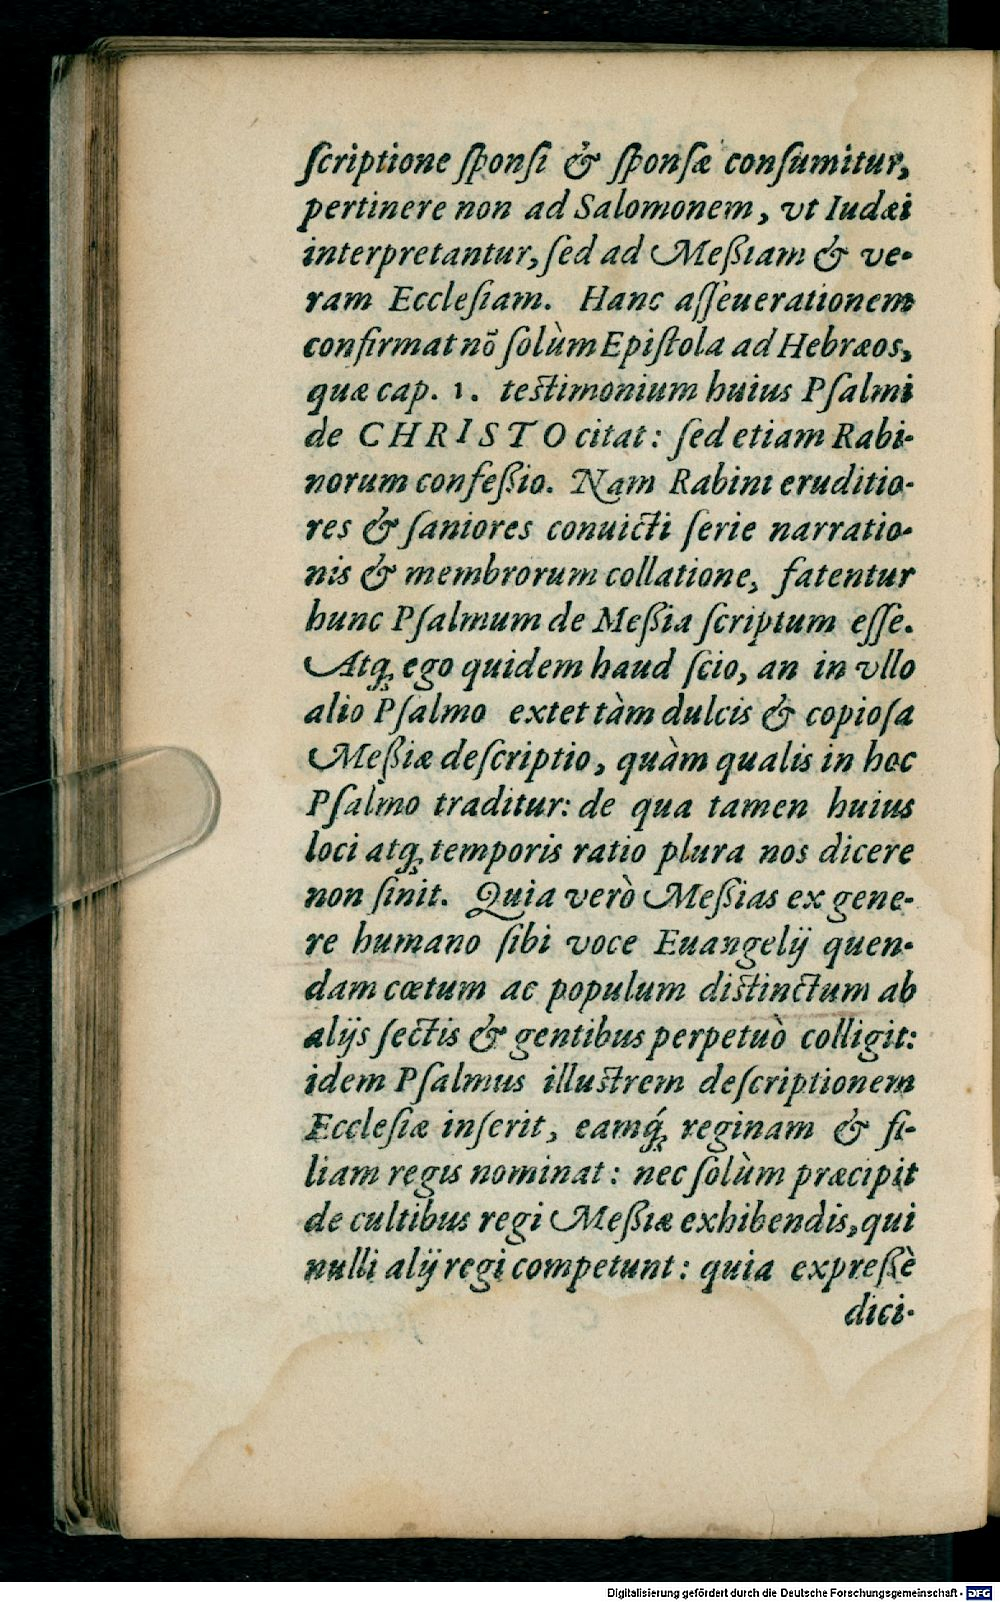 ſcriptione ſponſi & ſponſæ conſumitur,
pertinere non ad Salomonem, vt Iudæi
interpretantur, ſed ad Meßiam & ve-
ram Eccleſiam. Hanc aſſeuerationem
confirmat nõ ſolùm Epiſtola ad Hebræos,
quæ cap. 1. teſtimonium huius Pſalmi
de CHRISTO citat: ſed etiam Rabi-
norum confeßio. Nam Rabini eruditio-
res & ſaniores conuicti ſerie narratio-
nis & membrorum collatione, fatentur
hunc Pſalmum de Meßia ſcriptum eſſe.
Atq́ꝫ ego quidem haud ſcio, an in vllo
alio Pſalmo extet tàm dulcis & copioſa
Meßiæ deſcriptio, quàm qualis in hoc
Pſalmo traditur: de qua tamen huius
loci atqꝫ temporis ratio plura nos dicere
non ſinit. Quia verò Meßias ex gene-
re humano ſibi voce Euangelij quen-
dam cœtum ac populum diſtinctum ab
alijs ſectis & gentibus perpetuò colligit:
idem Pſalmus illuſtrem deſcriptionem
Eccleſiæ inſerit, eamq́ꝫ reginam & fi-
liam regis nominat: nec ſolùm præcipit
de cultibus regi Meßiæ exhibendis, qui
nulli alij regi competunt: quia expreßè
dici-
Digitalisierung gefördert durch die Deutsche Forschungsgemeinschaft - DFG